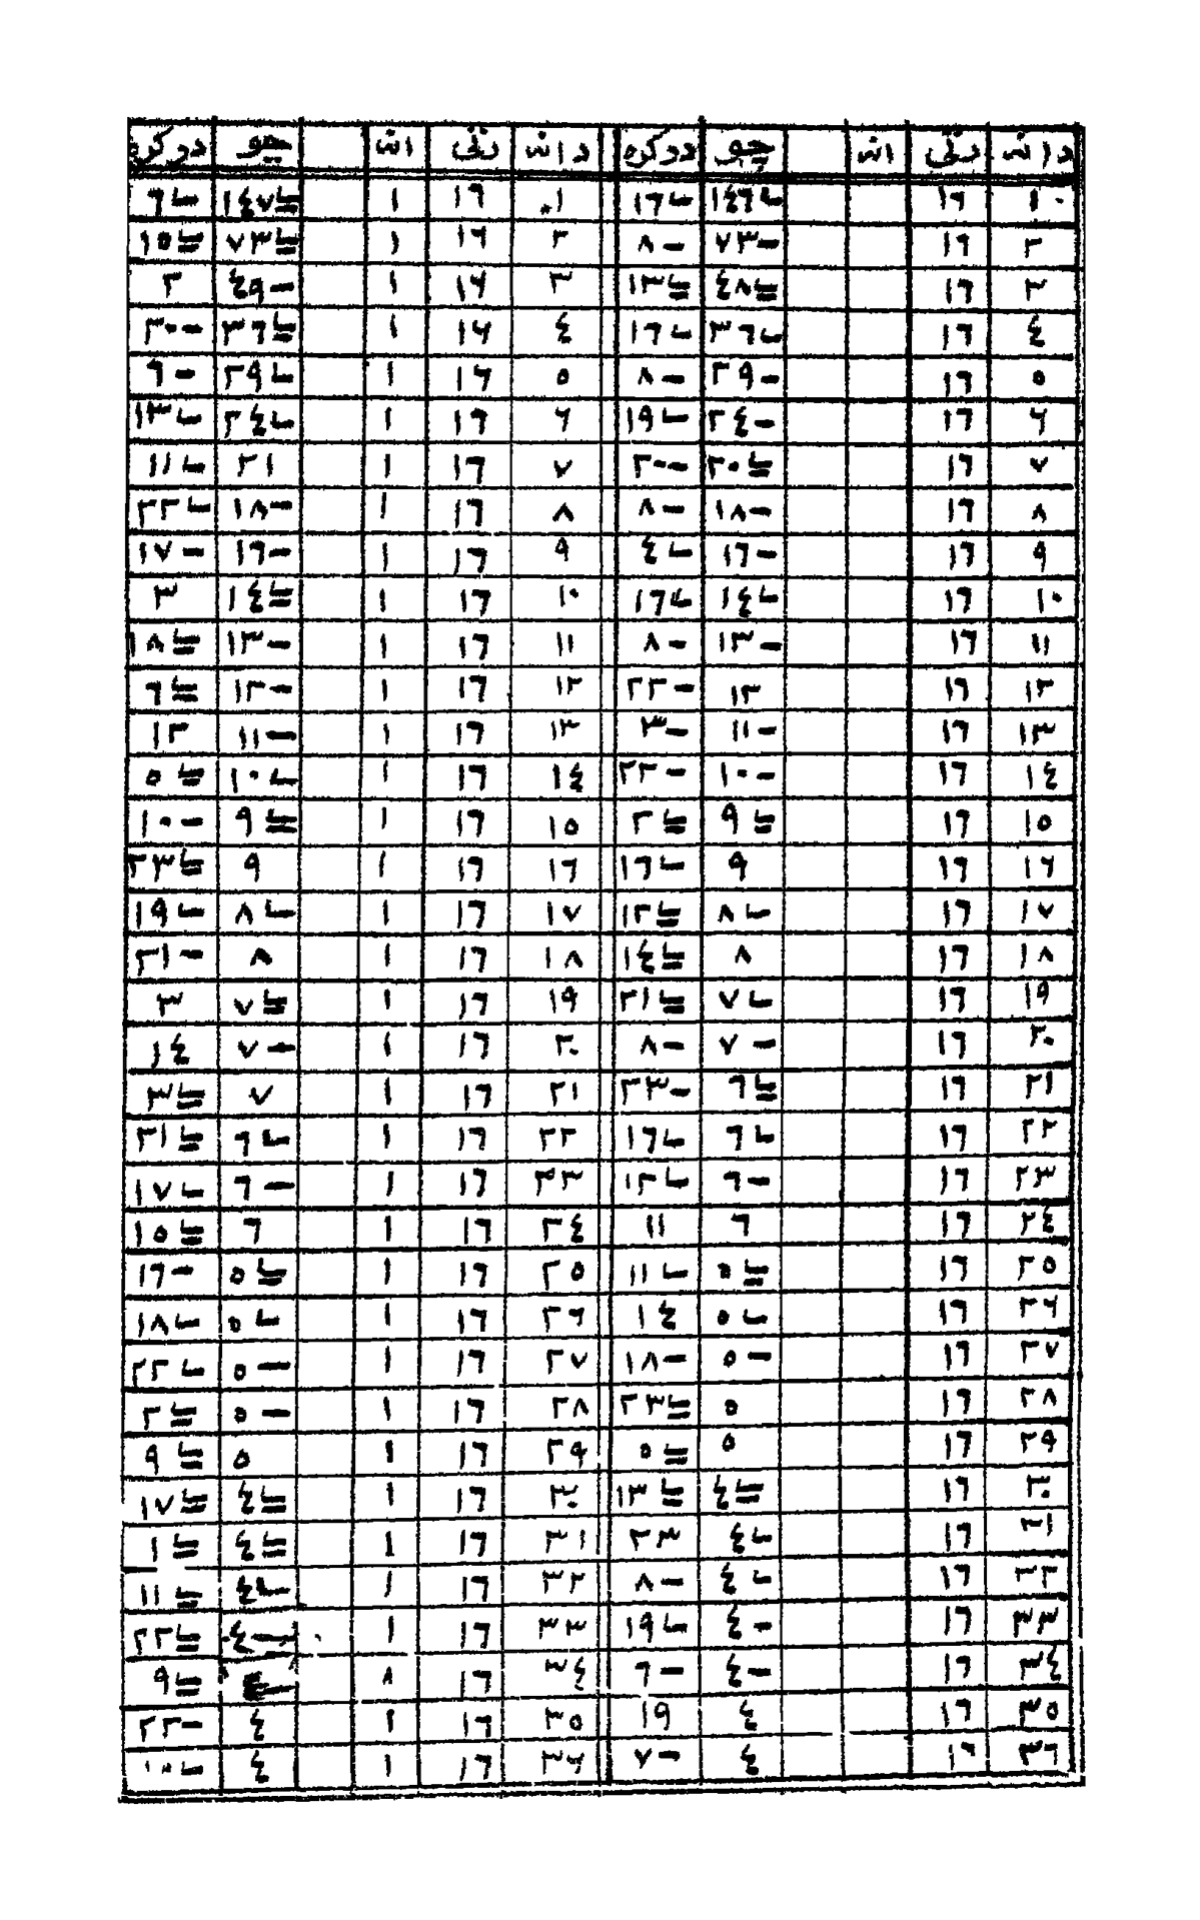 دانه رتي انه چو دوكره دانه رتي انه چو دوكره
١٠ ١٦ ١٤٦ ١٦ ١٠ ١٦ ١ ١٤٧ ٦
٢ ١٦ ٧٣- ٨- ٢ ١٦ ١ ٧٣ ١٥
٣ ١٦ ٤٨ ١٣ ٣ ١٦ ١ ٤٩- ٣
٤ ١٦ ٣٦ ١٦ ٤ ١٦ ١ ٣٦ ٢٠-
٥ ١٦ ٢٩- ٨- ٥ ١٦ ١ ٢٩ ٦-
٦ ١٦ ٢٤- ١٩ ٦ ١٦ ١ ٢٤ ١٣
٧ ١٦ ٢٠ ٢٠- ٧ ١٦ ١ ٢١ ١١
٨ ١٦ ١٨- ٨- ٨ ١٦ ١ ١٨- ٢٢
٩ ١٦ ١٦- ٤ ٩ ١٦ ١ ١٦- ١٧-
١٠ ١٦ ١٤ ١٦ ١٠ ١٦ ١ ١٤ ٣
١١ ١٦ ١٣- ٨- ١١ ١٦ ١ ١٣- ١٨
١٢ ١٦ ١٢ ٢٢- ١٢ ١٦ ١ ١٢- ٦
١٣ ١٦ ١١- ٣- ١٣ ١٦ ١ ١١- ١٢
١٤ ١٦ ١٠- ٢٢- ١٤ ١٦ ١ ١٠ ٥
١٥ ١٦ ٩ ٢ ١٥ ١٦ ١ ٩ ١٠-
١٦ ١٦ ٩ ١٦ ١٦ ١٦ ١ ٩ ٢٣
١٧ ١٦ ٨ ١٢ ١٧ ١٦ ١ ٨ ١٩
١٨ ١٦ ٨ ١٤ ١٨ ١٦ ١ ٨ ٢١-
١٩ ١٦ ٧ ٢١ ١٩ ١٦ ١ ٧ ٣
٢٠ ١٦ ٧- ٨- ٢٠ ١٦ ١ ٧- ١٤
٢١ ١٦ ٦ ٢٣- ٢١ ١٦ ١ ٧ ٣
٢٢ ١٦ ٦ ١٦ ٢٢ ١٦ ١ ٦ ٢١
٢٣ ١٦ ٦- ١٢ ٢٣ ١٦ ١ ٦- ١٧
٢٤ ١٦ ٦ ١١ ٢٤ ١٦ ١ ٦ ١٥
٢٥ ١٦ ٥ ١١ ٢٥ ١٦ ١ ٥ ١٦-
٢٦ ١٦ ٥ ١٤ ٢٦ ١٦ ١ ٥ ١٨
٢٧ ١٦ ٥- ١٨- ٢٧ ١٦ ١ ٥- ٢٢
٢٨ ١٦ ٥ ٢٣ ٢٨ ١٦ ١ ٥- ٢
٢٩ ١٦ ٥ ٥ ٢٩ ١٦ ١ ٥ ٩
٣٠ ١٦ ٤ ١٣ ٣٠ ١٦ ١ ٤ ١٧
٣١ ١٦ ٤ ٢٣ ٣١ ١٦ ١ ٤ ١
٣٢ ١٦ ٤ ٨- ٣٢ ١٦ ١ ٤ ١١
٣٣ ١٦ ٤- ١٩ ٣٣ ١٦ ١ ٤- ٢٢
٣٤ ١٦ ٤- ٦- ٣٤ ١٦ ٩
٣٥ ١٦ ٤ ١٩ ٣٥ ١٦ ١ ٤ ٢٢-
٣٦ ١٦ ٤ ٧- ٣٦ ١٦ ١ ٤ ١٠